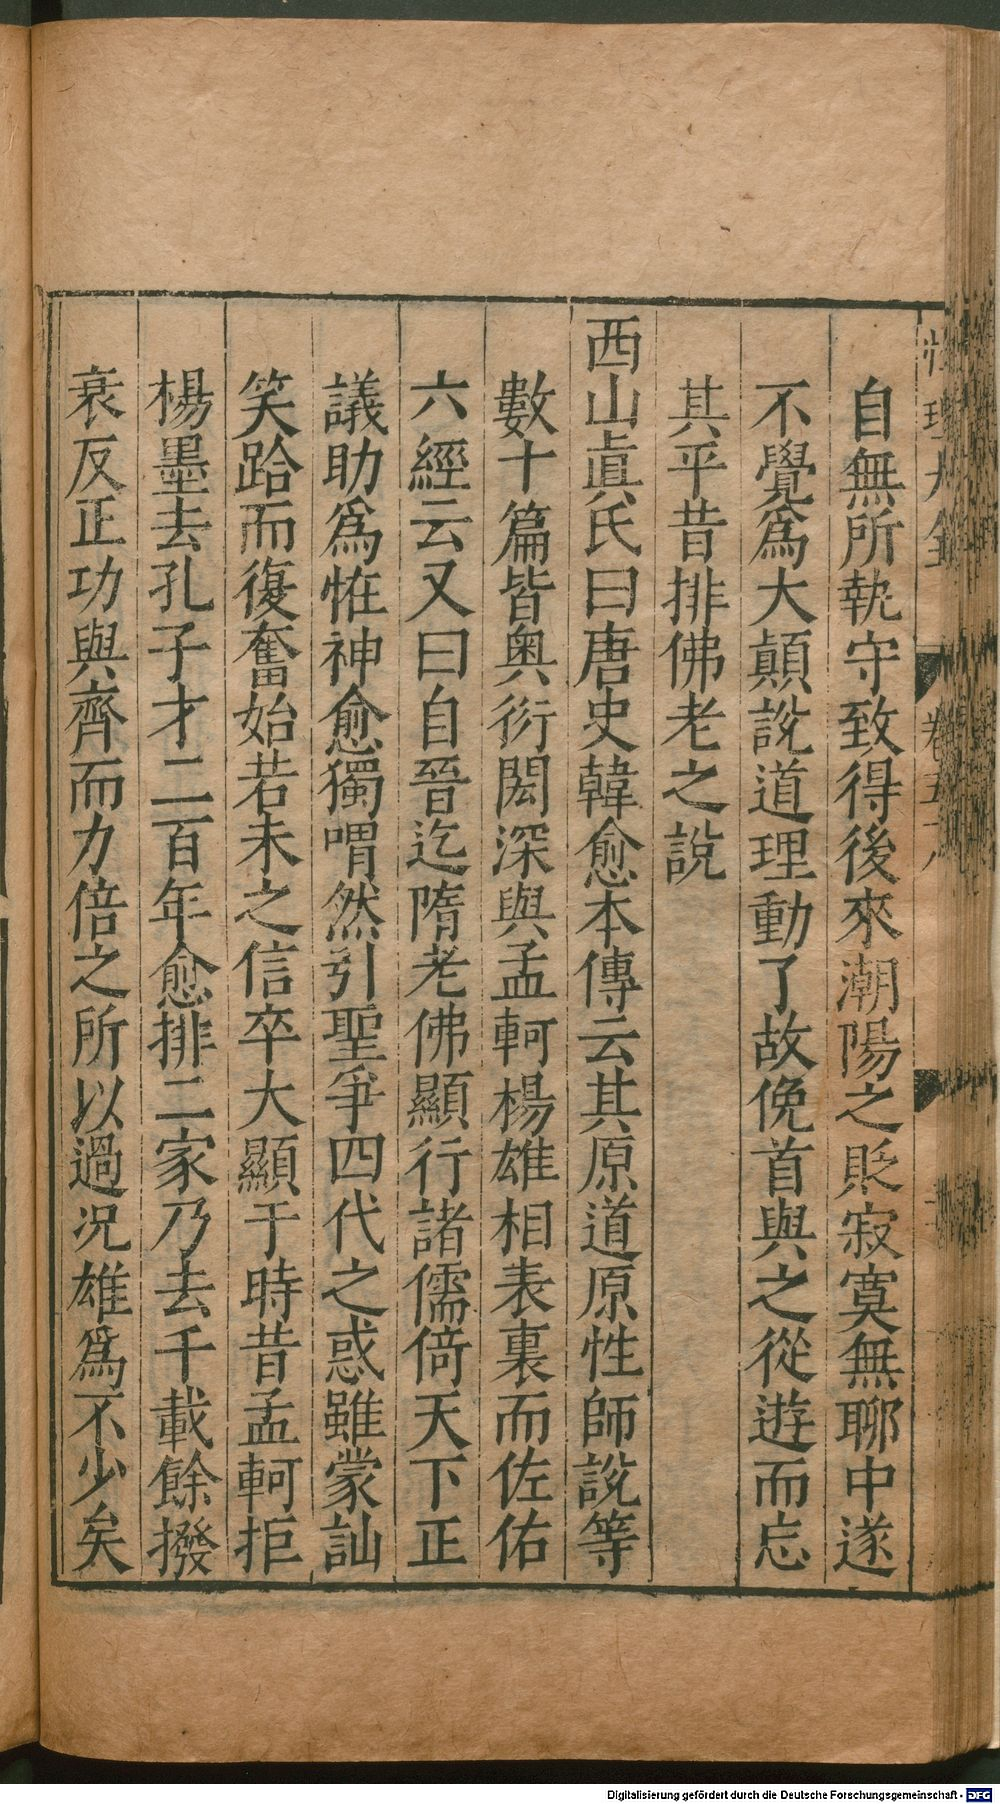 性理大全 卷五十八
自無所執守致得後來潮陽之貶寂寞無聊中遂
不覺為大顛說道理動了故俛首與之從遊而忘
其平昔排佛老之說
西山眞氏曰唐史韓愈本傳云其原道原性師說等
數十篇皆奧衍閎深與孟軻楊雄相表裏而佐佑
六經云又曰自晉迄隋老佛顯行諸儒倚天下正
議助爲恠神愈獨喟然引聖爭四代之惑雖蒙訕
笑跲而復奮始若未之信卒大顯于時昔孟軻拒
楊墨去孔子才二百年愈排二家乃去千載餘撥
衰反正功與齊而力倍之所以過况雄爲不少矣
Digitalisierung gefördert durch die Deutsche Forschungsgemeinschaft - DFG